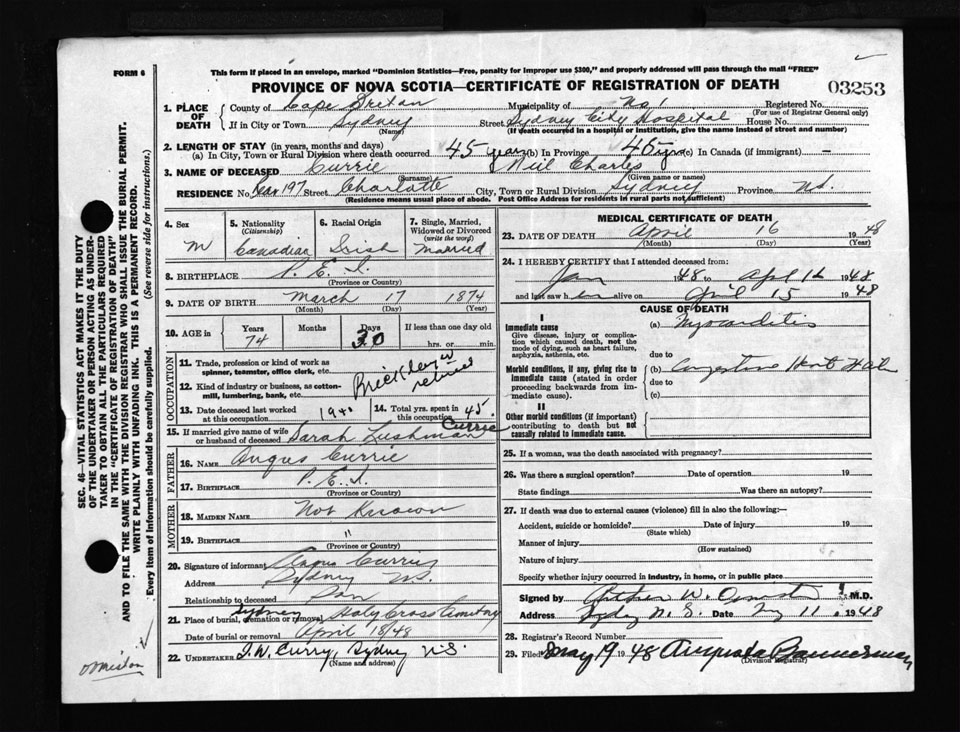 FORM 6
This form if placed in an envelope, marked "Dominion Statistics—Free, penalty for improper use $300," and properly addressed will pass through the mail "FREE"
PROVINCE OF NOVA SCOTIA—CERTIFICATE OF REGISTRATION OF DEATH
03253
1. PLACE OF DEATH
County of Cape Breton Municipality of No 1 Registered No.
(For use of Registrar General only)
If in City or Town Sydney Street Sydney City Hospital House No.
(Name) (If death occurred in a hospital or institution, give the name instead of street and number)
2. LENGTH OF STAY (in years, months and days)
(a) In City, Town or Rural Division where death occurred 45 years (b) In Province 45 yrs (c) In Canada (if immigrant) —
3. NAME OF DECEASED Currie Neil Charles
(Surname) (Given name or names)
RESIDENCE No. 197 Street Charlotte City, Town or Rural Division Sydney Province N.S.
(Residence means usual place of abode. Post Office Address for residents in rural parts not sufficient)
4. Sex M
5. Nationality (Citizenship) Canadian
6. Racial Origin Irish
7. Single, Married, Widowed or Divorced (write the word) Married
8. BIRTHPLACE P. E. I.
(Province or Country)
9. DATE OF BIRTH March 17 1874
(Month) (Day) (Year)
10. AGE in Years 74 Months Days 30 If less than one day old
hrs. or min.
OCCUPATION
11. Trade, profession or kind of work as spinner, teamster, office clerk, etc. Bricklayer
12. Kind of industry or business, as cotton-mill, lumbering, bank, etc. retired
13. Date deceased last worked at this occupation 14. Total yrs. spent in this occupation 45.
15. If married give name of wife or husband of deceased Sarah Currie
FATHER
16. NAME Angus Currie
17. BIRTHPLACE P. E. I.
(Province or Country)
MOTHER
18. MAIDEN NAME Not Known
19. BIRTHPLACE "
(Province or Country)
20. Signature of informant Currie
Address Sydney N.S.
Relationship to deceased Son
21. Place of burial, cremation or removal Sydney Holy Cross Cemetery
Date of burial or removal April 18/48
22. UNDERTAKER T.W. Curry, Sydney N.S.
(Name and address)
MEDICAL CERTIFICATE OF DEATH
23. DATE OF DEATH April 16 1948
(Month) (Day) (Year)
24. I HEREBY CERTIFY that I attended deceased from:
Jan 1948 to Apl 16 1948
and last saw him alive on April 15 1948
CAUSE OF DEATH
I
Immediate cause
Give disease, injury or complication which caused death, not the mode of dying, such as heart failure, asphyxia, asthenia, etc.
(a) Myocarditis
due to
Morbid conditions, if any, giving rise to immediate cause (stated in order proceeding backwards from immediate cause).
(b) Congestive Heart
due to
(c)
II
Other morbid conditions (if important) contributing to death but not causally related to immediate cause.
25. If a woman, was the death associated with pregnancy?
26. Was there a surgical operation? Date of operation 19
State findings Was there an autopsy?
27. If death was due to external causes (violence) fill in also the following:—
Accident, suicide or homicide? Date of injury 19
(State which)
Manner of injury
(How sustained)
Nature of injury
Specify whether injury occurred in industry, in home, or in public place
Signed by Arthur W. M.D.
Address Sydney N.S. Date 11 1948
28. Registrar's Record Number
29. Filed May 19 1948 Augusta Bannerman
(Division Registrar)
SEC. 46—VITAL STATISTICS ACT MAKES IT THE DUTY
OF THE UNDERTAKER OR PERSON ACTING AS UNDER-
TAKER TO OBTAIN ALL THE PARTICULARS REQUIRED
IN THE "CERTIFICATE OF REGISTRATION OF DEATH"
AND TO FILE THE SAME WITH THE DIVISION REGISTRAR WHO SHALL ISSUE THE BURIAL PERMIT.
WRITE PLAINLY WITH UNFADING INK. THIS IS A PERMANENT RECORD.
Every item of Information should be carefully supplied. (See reverse side for instructions.)